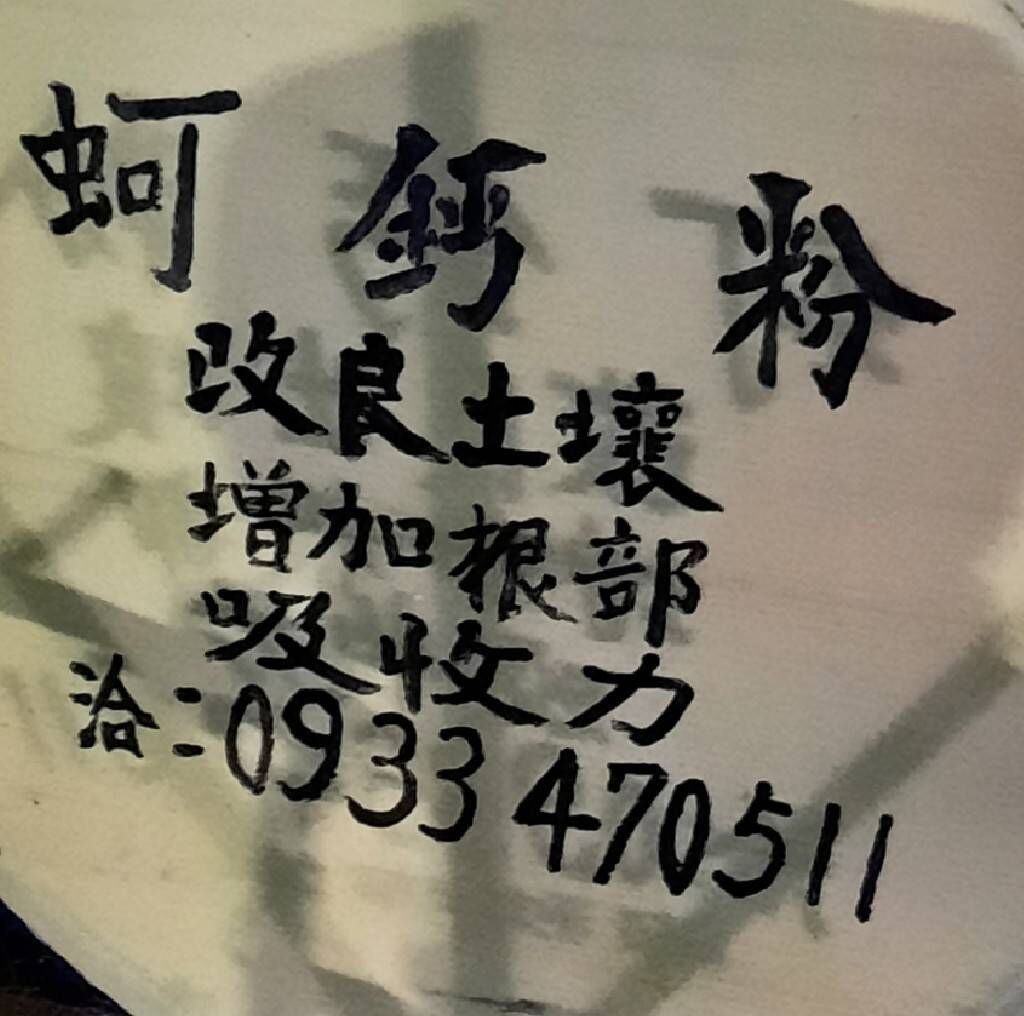 蚵鈣粉
改良土壤
增加根部
吸收力
洽：0933470511